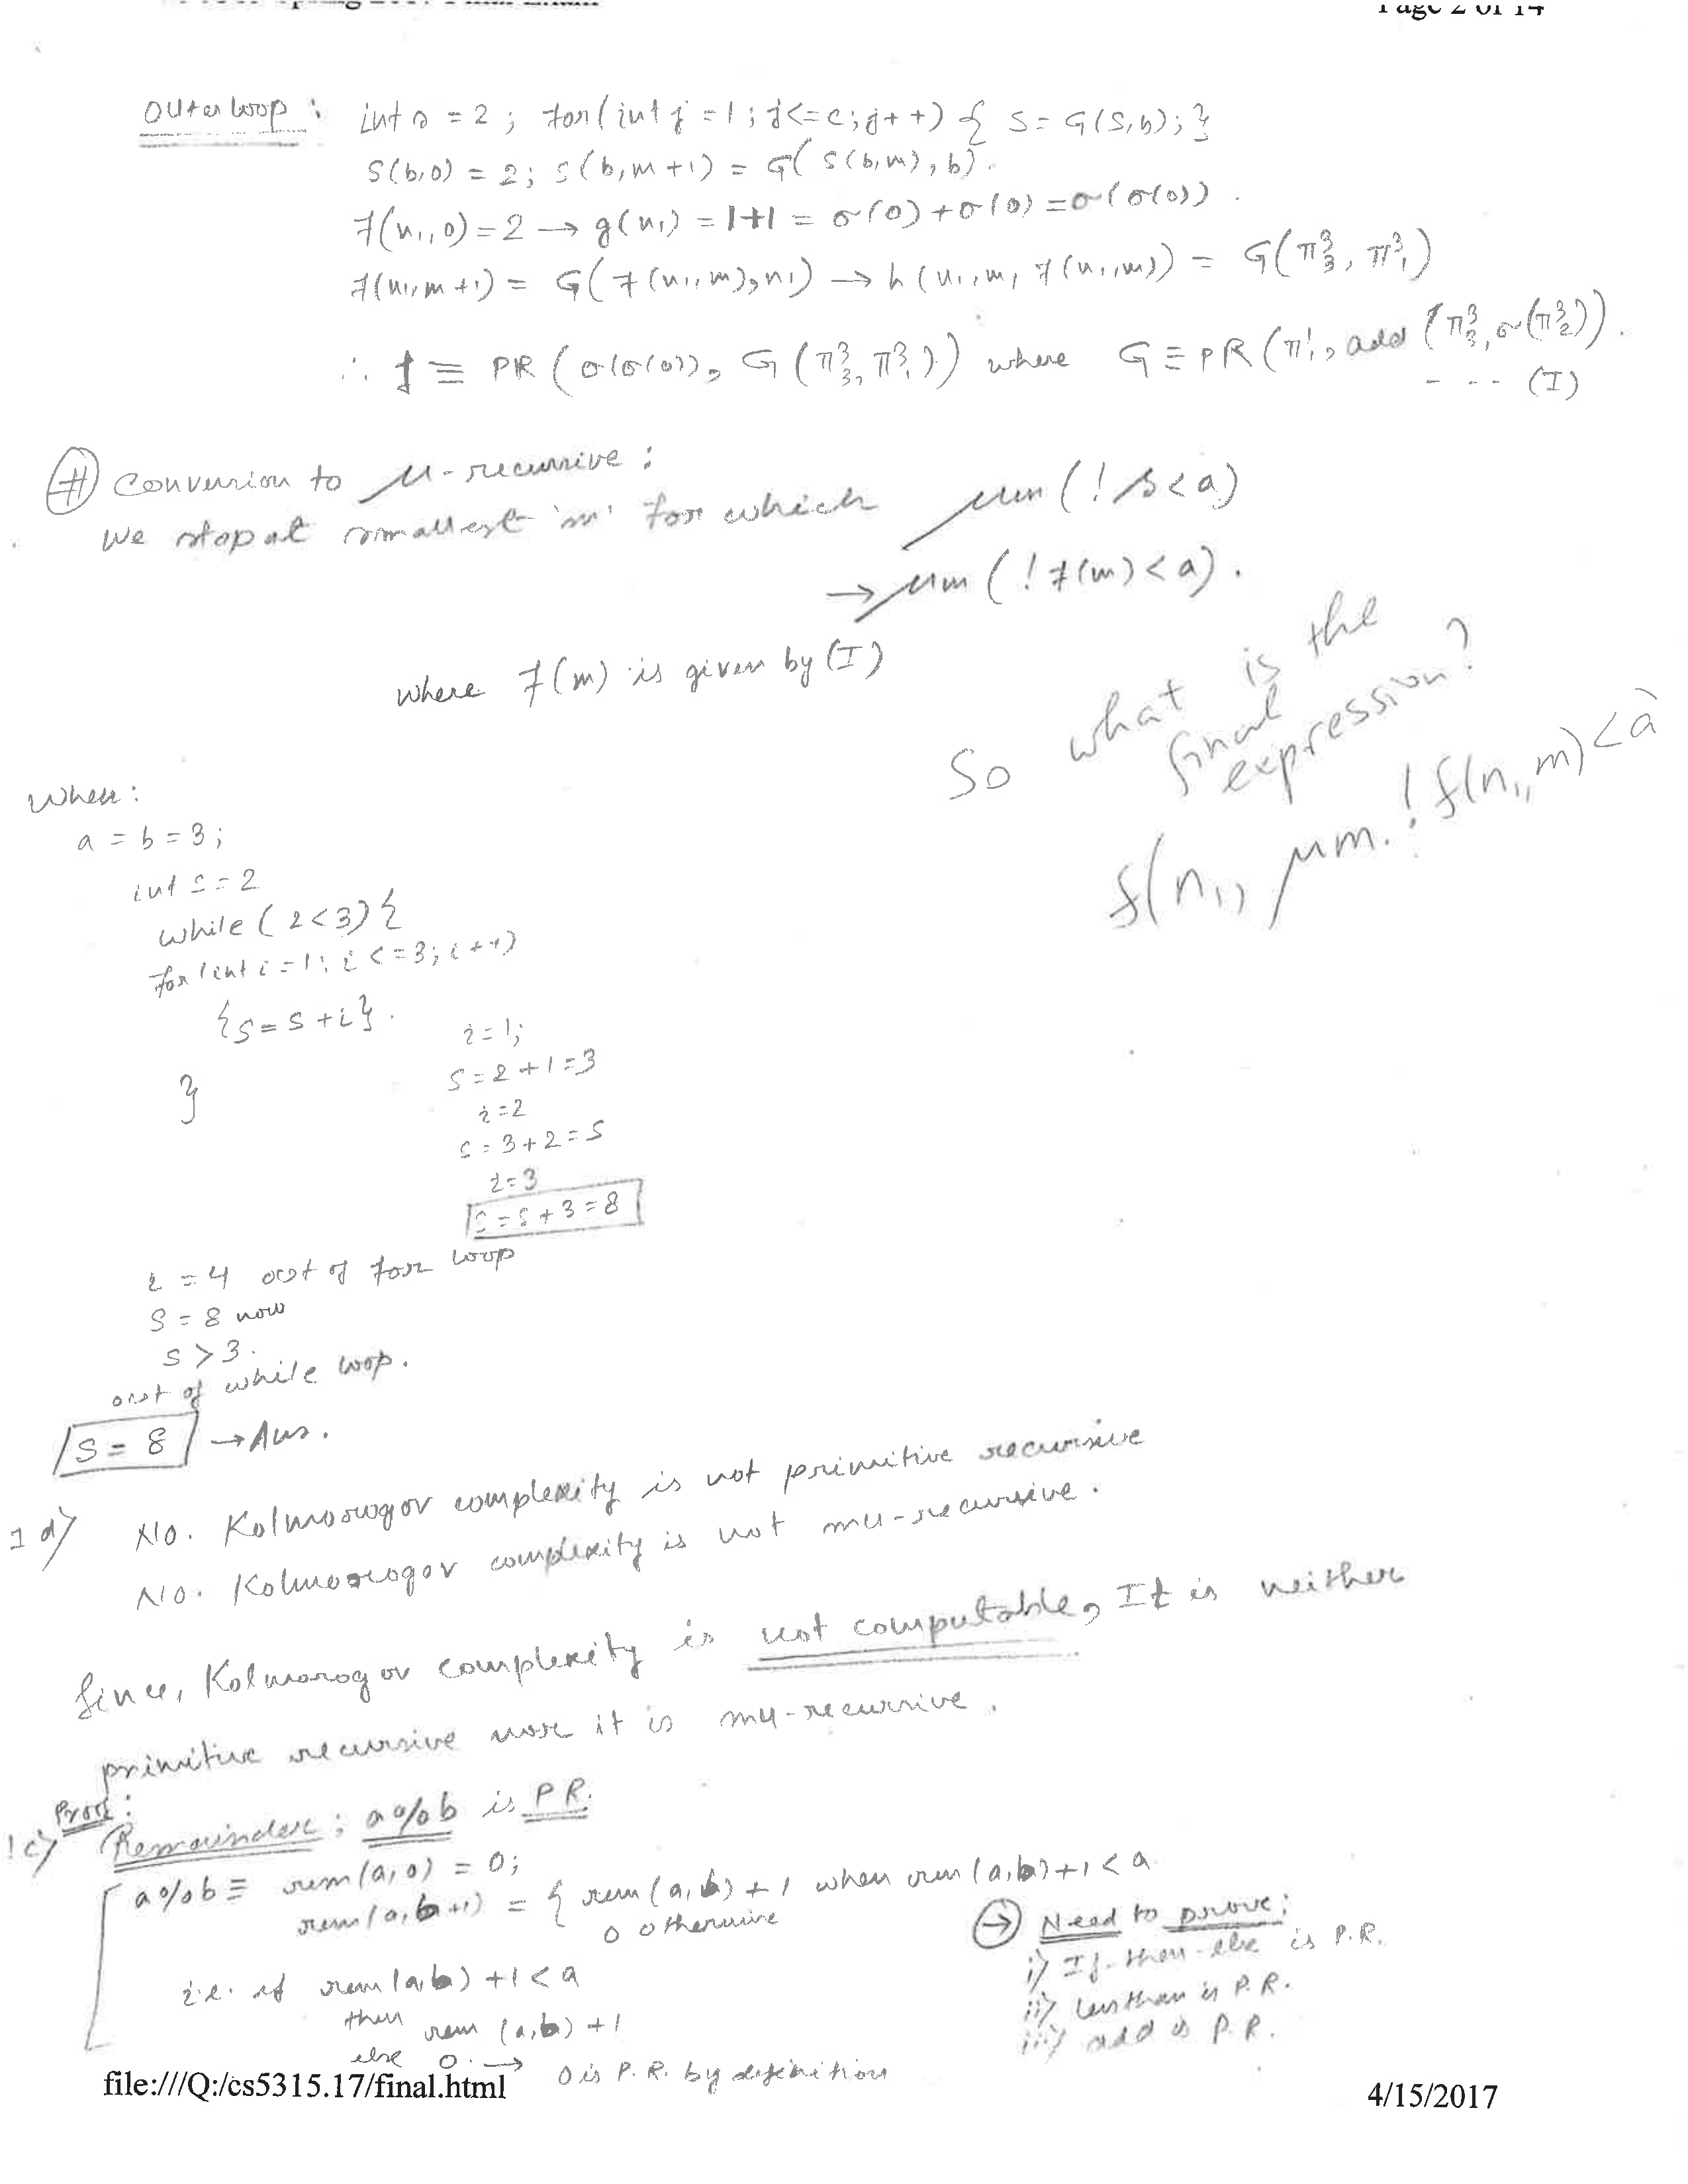 Page 2 of 14
Outer loop : int s = 2 ; for(int j = 1 ; j<=c; j++) { S = G(S,b); }
S(b,0) = 2; S(b,m+1) = G( S(b,m), b).
f(n₁,0)=2 → g(n₁) = 1+1 = σ(0)+σ(0) = σ(σ(0)).
f(n₁,m+1) = G( f(n₁,m), n₁) → h(n₁,m, f(n₁,m)) = G(π³₃, π³₁)
∴ f ≡ PR ( σ(σ(0)), G(π³₃, π³₁)) where G ≡ PR(π¹₁, add (π³₃, σ(π³₂)).
- - - - (I)
# Conversion to μ-recursive :
We stop at smallest 'm' for which μm (! s<a)
→ μm (! f(m) < a).
where f(m) is given by (I)
So what is the
final
expression?
f(n₁, μm. ! f(n₁, m) < a)
When:
a = b = 3 ;
int s = 2
while ( 2<3) {
for(int i = 1; i <= 3; i++)
{S = S + i}.
}
i = 1;
S = 2 + 1 = 3
i = 2
S = 3 + 2 = 5
i = 3
S = 5 + 3 = 8
i = 4 out of for loop
S = 8 now
S > 3.
out of while loop.
S = 8 → Ans.
1 d) No. Kolmorogov complexity is not primitive recursive
No. Kolmorogov complexity is not mu-recursive.
Since, Kolmorogov complexity is not computable, It is neither
primitive recursive nor it is mu-recursive.
1c) Proof:
Remainder ; a%b is P.R.
a%b ≡ rem(a,0) = 0;
rem(a,b+1) = { rem(a,b)+1 when rem(a,b)+1 < a
0 otherwise
i.e. if rem(a,b) +1 < a
then rem (a,b) +1
else 0. → 0 is P.R. by definition
→ Need to prove:
i) If-then-else is P.R.
ii) less than is P.R.
iii) add is P.R.
file:///Q:/cs5315.17/final.html 4/15/2017